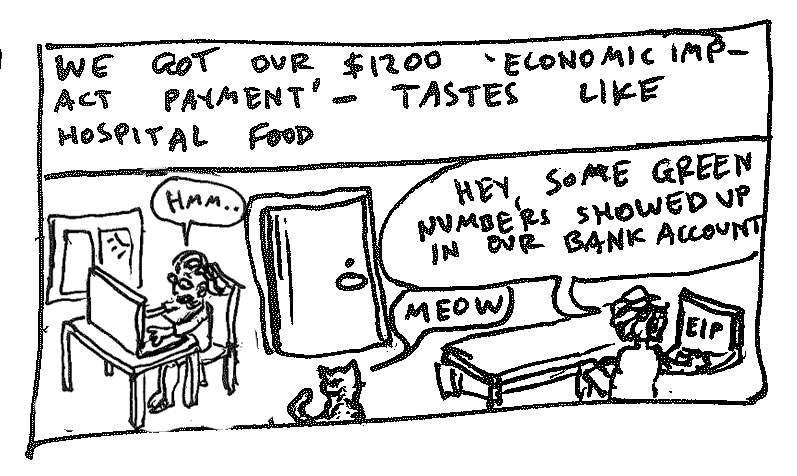 WE GOT OUR $1200 'ECONOMIC IMP-
ACT PAYMENT' - TASTES LIKE
HOSPITAL FOOD
HMM..
HEY, SOME GREEN
NUMBERS SHOWED UP
IN OUR BANK ACCOUNT
MEOW
EIP